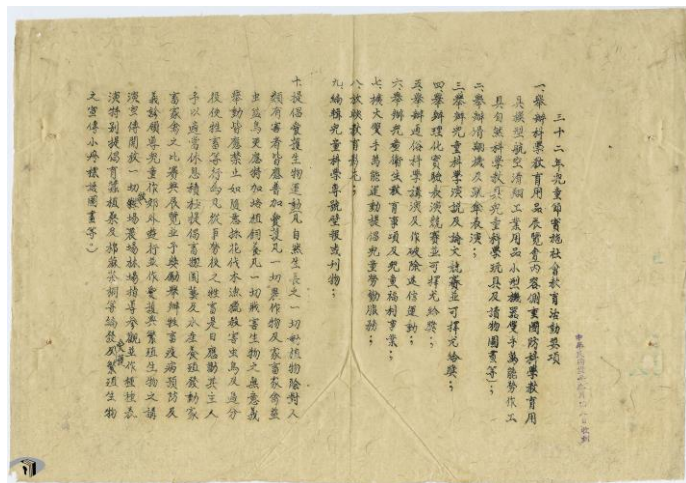 三十二年兒童節實施社會教育活動要項
一、舉辦科學教育用品展覽會內容側重國防科學教育用
具模型航空滑翔工業用品小型機器雙手萬能勞作工
具自然科學教具兒童科學玩具及讀物圖畫等；
二、舉辦滑翔機及跳傘表演；
三、舉辦兒童科學演說及論文競賽並可擇尤給獎；
四、舉辦理化實驗表演競賽並可擇尤給獎；
五、舉辦通俗科學講演及作破除迷信運動；
六、舉辦兒童衛生教育事項及兒童福利事業；
七、擴大雙手萬能運動提倡兒童勞動服務；
八、放映教育影片；
九、編輯兒童科學專號壁報或刊物；
十、提倡愛護生物運動凡自然生長之一切動植物除對人
類有害者皆應普加愛護凡一切農作物及家畜家禽益
虫益鳥更應特加培植飼養凡一切戕害生物之無意義
舉動皆應禁止如隨意採花伐木漁獵殺害虫鳥及過分
役使牲畜等行為凡從事勞役之牲畜是日應勸其主人
予以適當休息積極提倡畜牧園藝及水產養殖發動家
畜家禽之比賽與展覽並予獎勵舉辦牲畜疫病預防及
義診領導兒童作郊外遊行並作愛護與繁殖生物之講
演宣傳開放一切牧場農場林場指導參觀並作種技表
演特別提倡育蠶植桑及棉蔴茶桐等編發愛護及繁殖生物
之宣傳小冊標語圖畫等。